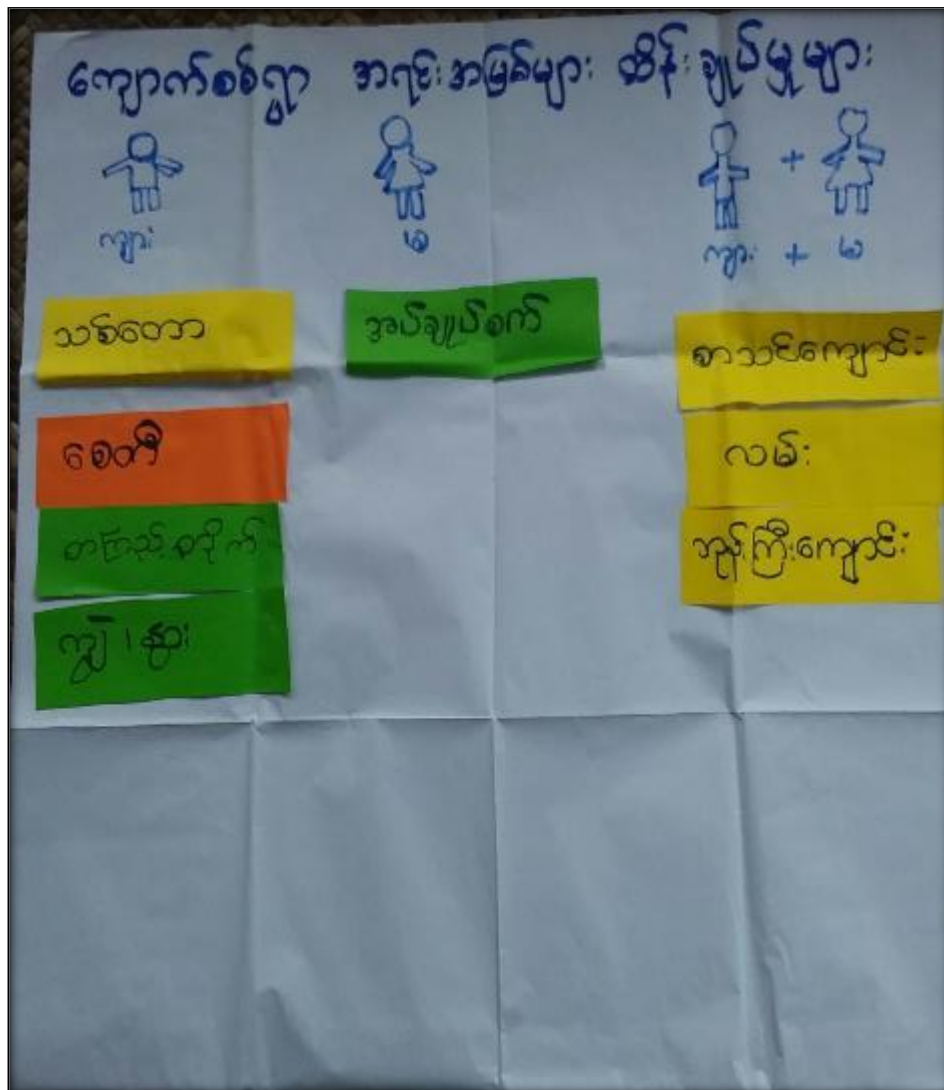 ကျောက်စစ်ရွာ အရင်းအမြစ်များ ထိန်းချုပ်မှုများ
+
ကျား မ ကျား + မ
သစ်တော
စေတီ
ကျွဲ၊ နွား
အပ်ချုပ်စက်
စာသင်ကျောင်း
လမ်း
ဘုန်းကြီးကျောင်း